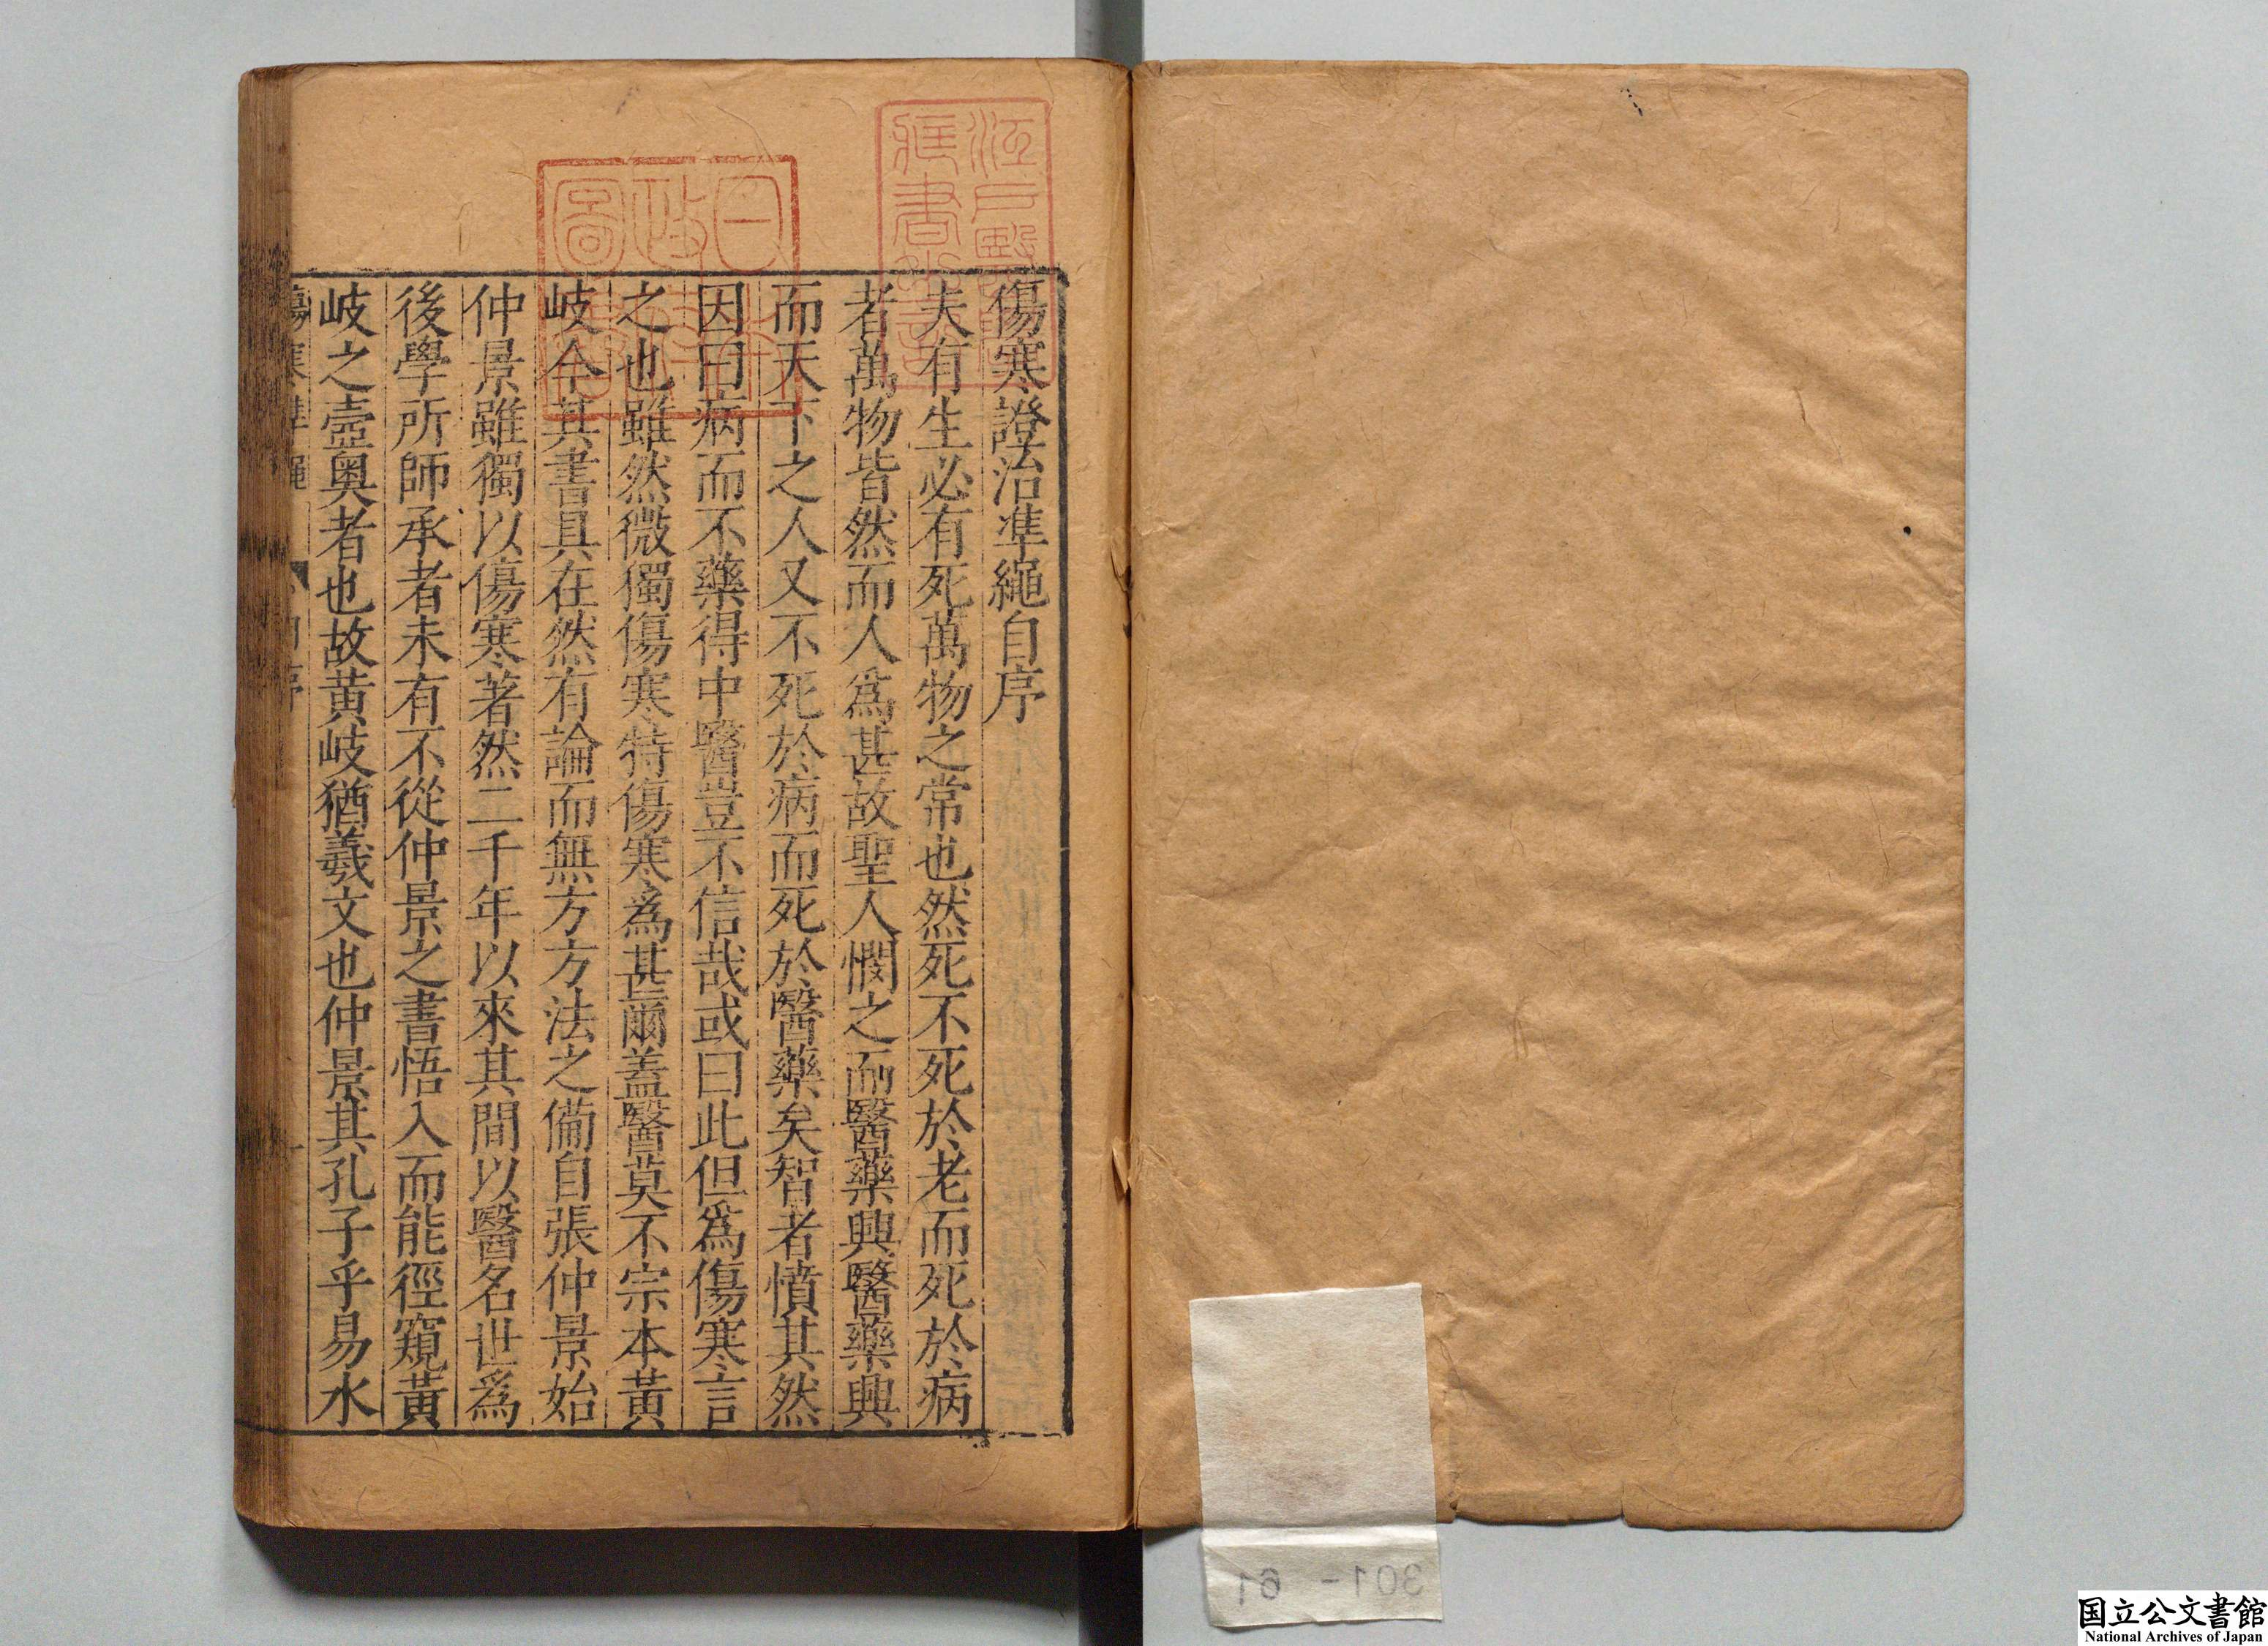 傷寒證治準繩自序
夫有生必有死萬物之常也然死不死於老而死於病
者萬物皆然而人爲甚故聖人憫之而醫藥興醫藥興
而天下之人又不死於病而死於醫藥矣智者憤其然
因曰病而不藥得中醫豈不信哉或曰此但爲傷寒言
之也雖然微獨傷寒特傷寒爲甚爾蓋醫莫不宗本黃
岐今其書具在然有論而無方方法之備自張仲景始
仲景雖獨以傷寒著然二千年以來其間以醫名世爲
後學所師承者未有不從仲景之書悟入而能徑窺黃
岐之壼奧者也故黃岐猶羲文也仲景其孔子乎易水
傷寒準繩 自序 一
江戸醫學
藏書之記
日本
政府
圖書
301-61
国立公文書館
National Archives of Japan